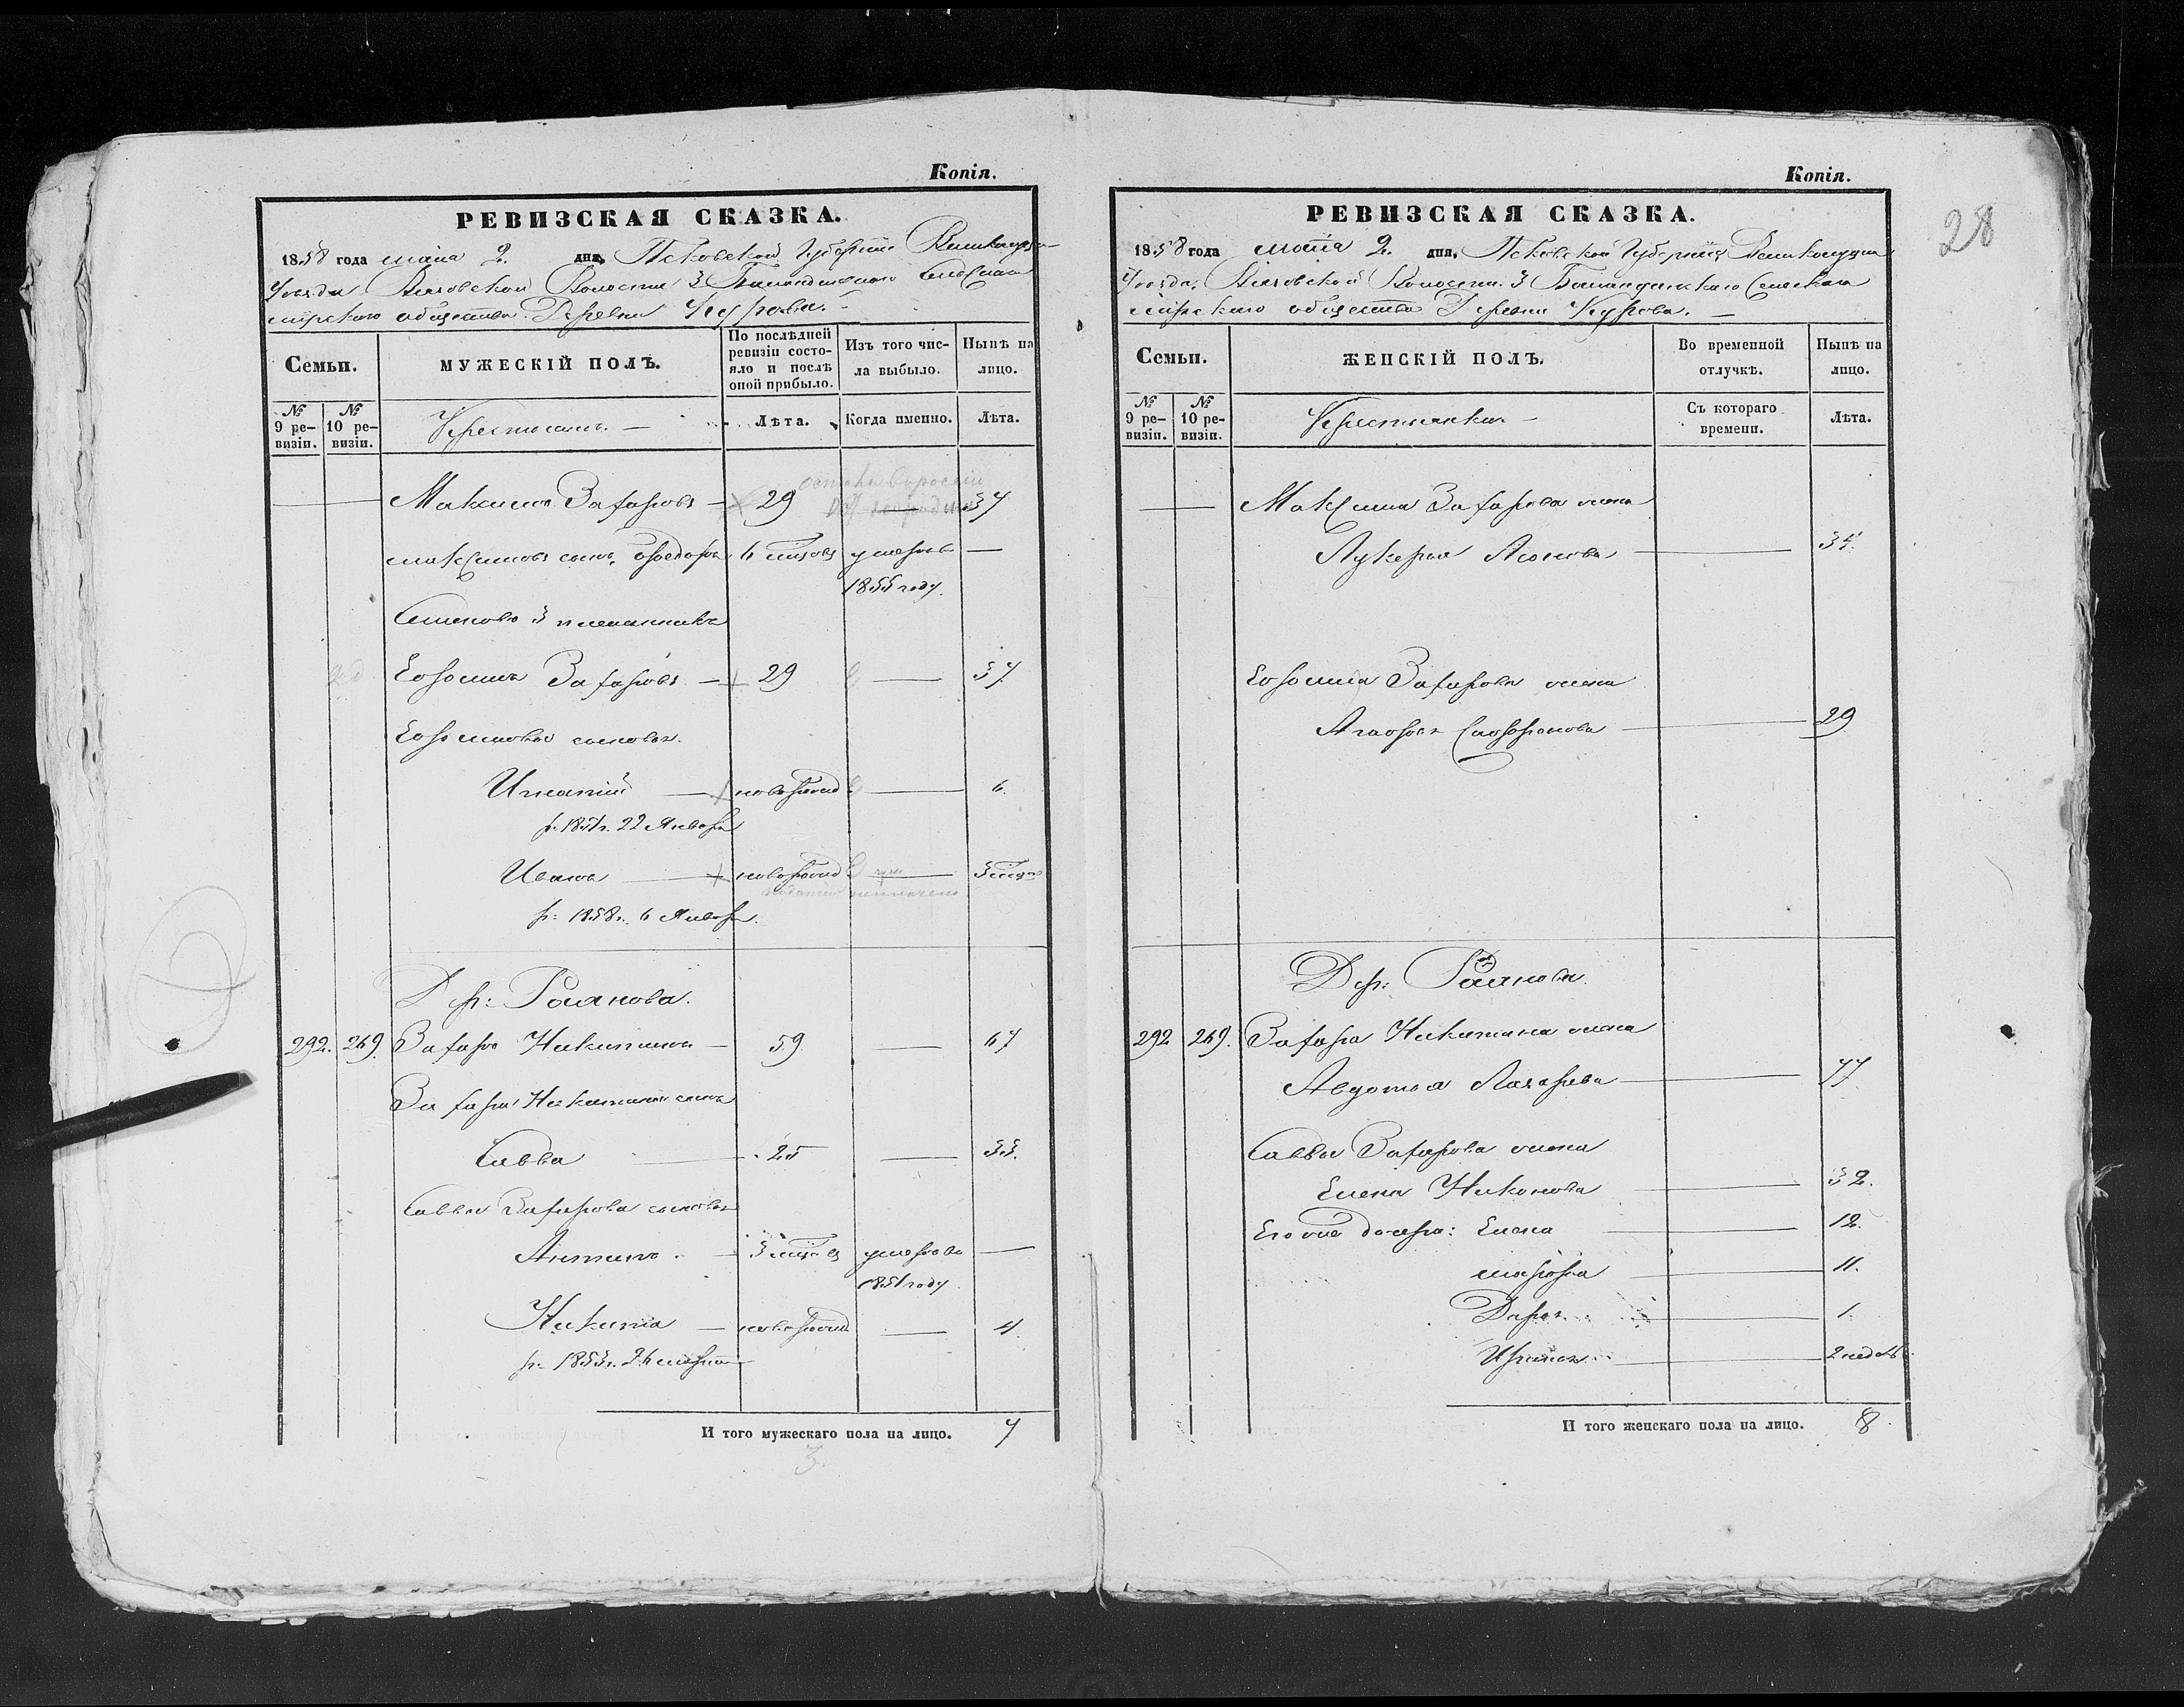 Копія.
РЕВИЗСКАЯ СКАЗКА.
1858 года маія 2. дня, Псковской Губерніи Великолуцка
Уѣзда Волости 3 Сельскаго
мірскаго общества Деревни Курова.
Семьи.
МУЖЕСКІЙ ПОЛЪ.
По послѣдней ревизіи состояло и послѣ оной прибыло.
Изъ того числа выбыло.
Нынѣ на лицо.
№ 9 ревизіи.
№ 10 ревизіи.
Крестьяне.
Лѣта.
Когда именно.
Лѣта.
Максимъ Захаровъ 29 37
Максимовъ сынъ Ѳеодоръ 6 умеръ
1855 году.
3 племянникъ
Ефимъ Захаровъ 29 37
Ефимовы сыновья.
Игнатій новорожд 6.
р. 1851г. 22 Января
Иванъ новорожд 3 мѣс
р: 1858г. 6 Января.
Дер: Романова.
292. 269. Захаръ Никитинъ 59. 67
Захара Никитина сынъ
Савва 25 33.
Саввы Захарова сыновья
Антипъ 3 умеръ
1851 году.
Никита новорожд 4.
р: 1853г. 26 марта
И того мужескаго пола на лицо. 7
3.
Копія.
28
РЕВИЗСКАЯ СКАЗКА.
1858 года маія 2. дня, Псковской Губерніи Великолуцка
Уѣзда, Волости 3 Сельскаго
мірскаго общества Деревни Курова.
Семьи.
ЖЕНСКІЙ ПОЛЪ.
Во временной отлучкѣ.
Нынѣ на лицо.
№ 9 ревизіи.
№ 10 ревизіи.
Крестьянки
Съ котораго времени.
Лѣта.
Максима Захарова жена
Лукерья 34.
Ефима Захарова жена
29
Дер: Романова.
292 269. Захара Никитина жена
Авдотья Лазарева 77
Саввы Захарова жена
Елена Никонова 32.
Его же дочери: Елена 12.
Марфа 11.
Дарья 1.
Ирина 2 недѣль
И того женскаго пола на лицо. 8